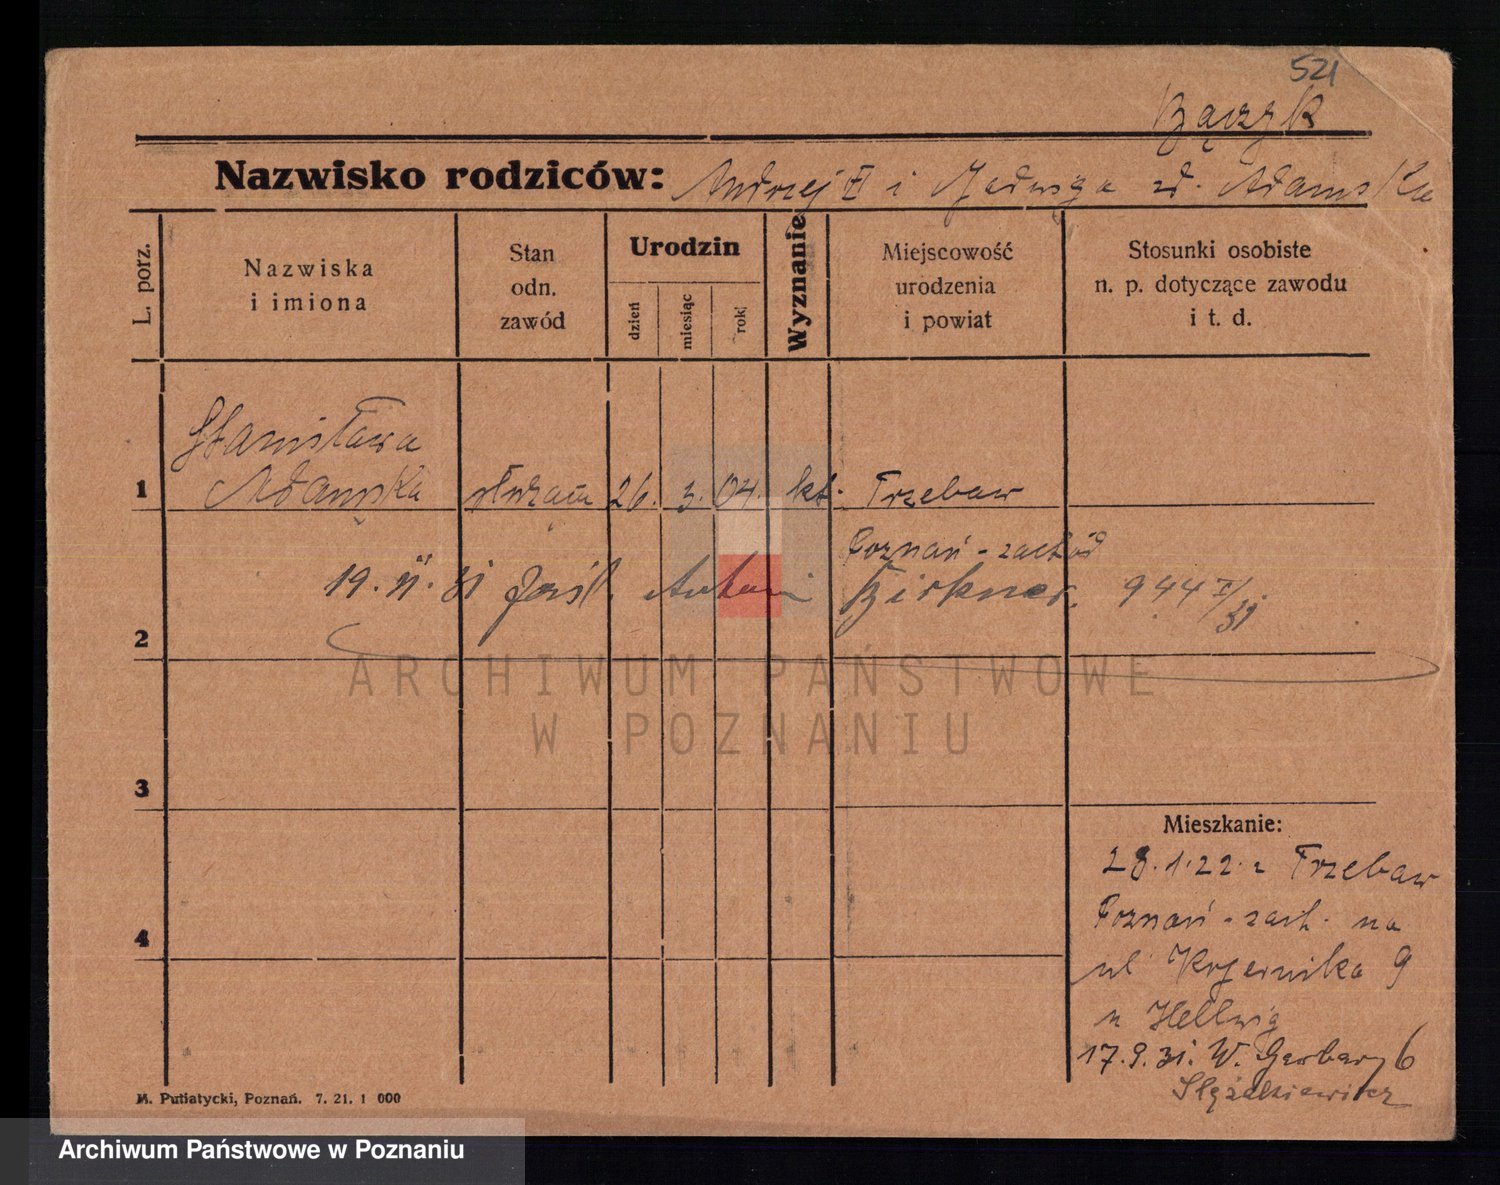 521
Bączyk
Nazwisko rodziców: Andrzej i Jadwiga zd. Adamska
L. porz.
Nazwiska
i imiona
Stan
odn.
zawód
Urodzin
dzień
miesiąc
rok
Wyznanie
Miejscowość
urodzenia
i powiat
Stosunki osobiste
n. p. dotyczące zawodu
i t. d.
Stanisława
1 Adamska służąca 26. 3. 04. kt. Trzebaw
Poznań - zachód
19. 31 Antoni Birkner. 944 I/31
2
ARCHIWUM PAŃSTWOWE
W POZNANIU
3
Mieszkanie:
28.1.22 z Trzebaw
Poznań - zach. na
4
ul 9
u Hellwig
17.9.31. W. Garbary 6
M. Putiatycki, Poznań. 7. 21. 1 000
Archiwum Państwowe w Poznaniu